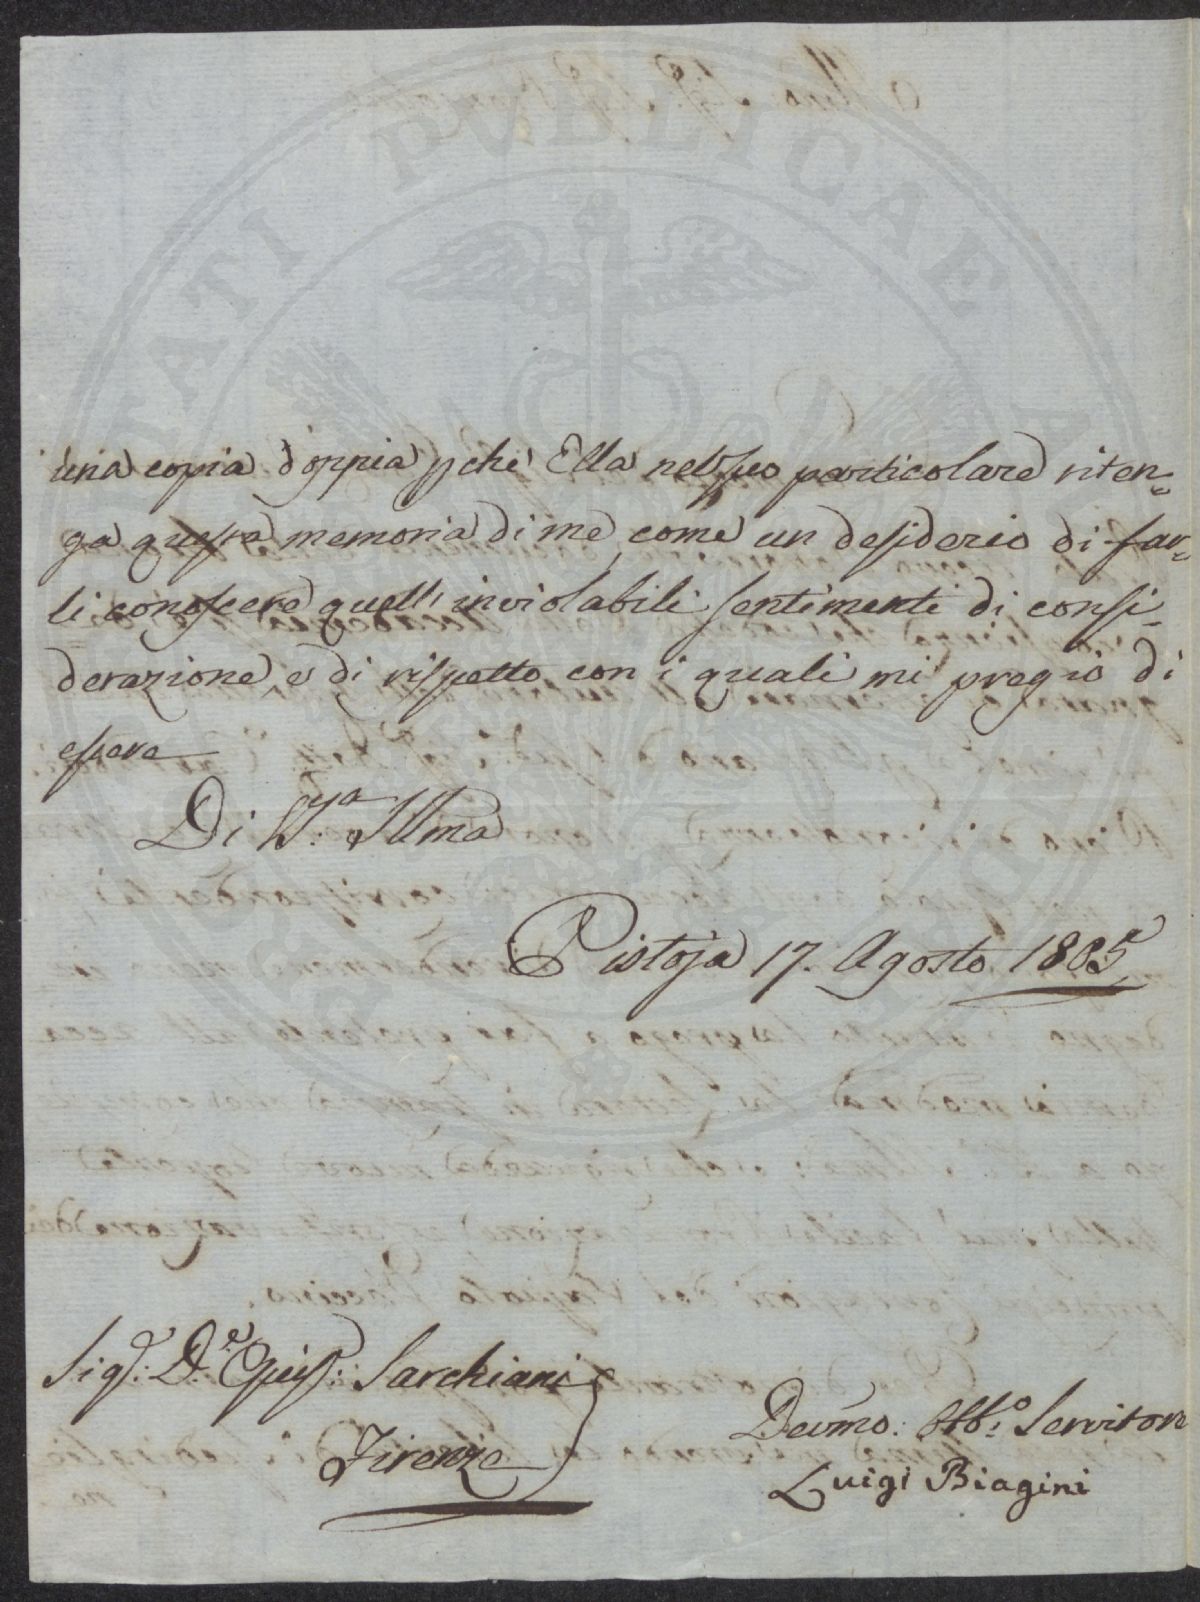 una copia doppia pchè Ella nel suo particolare riten=
ga questa memoria di me come un desiderio di far=
li conoscere quelli inviolabili sentimenti di consi=
derazione e di rispetto con i quali mi pregio di
essere
Di V.ª Sig.ª Illma
Pistoja 17. Agosto 1805
Sig.ʳ D.ʳ Giuse.: Sarchiani
Firenze
Devmo: Obb.º Servitore
Luigi Biagini